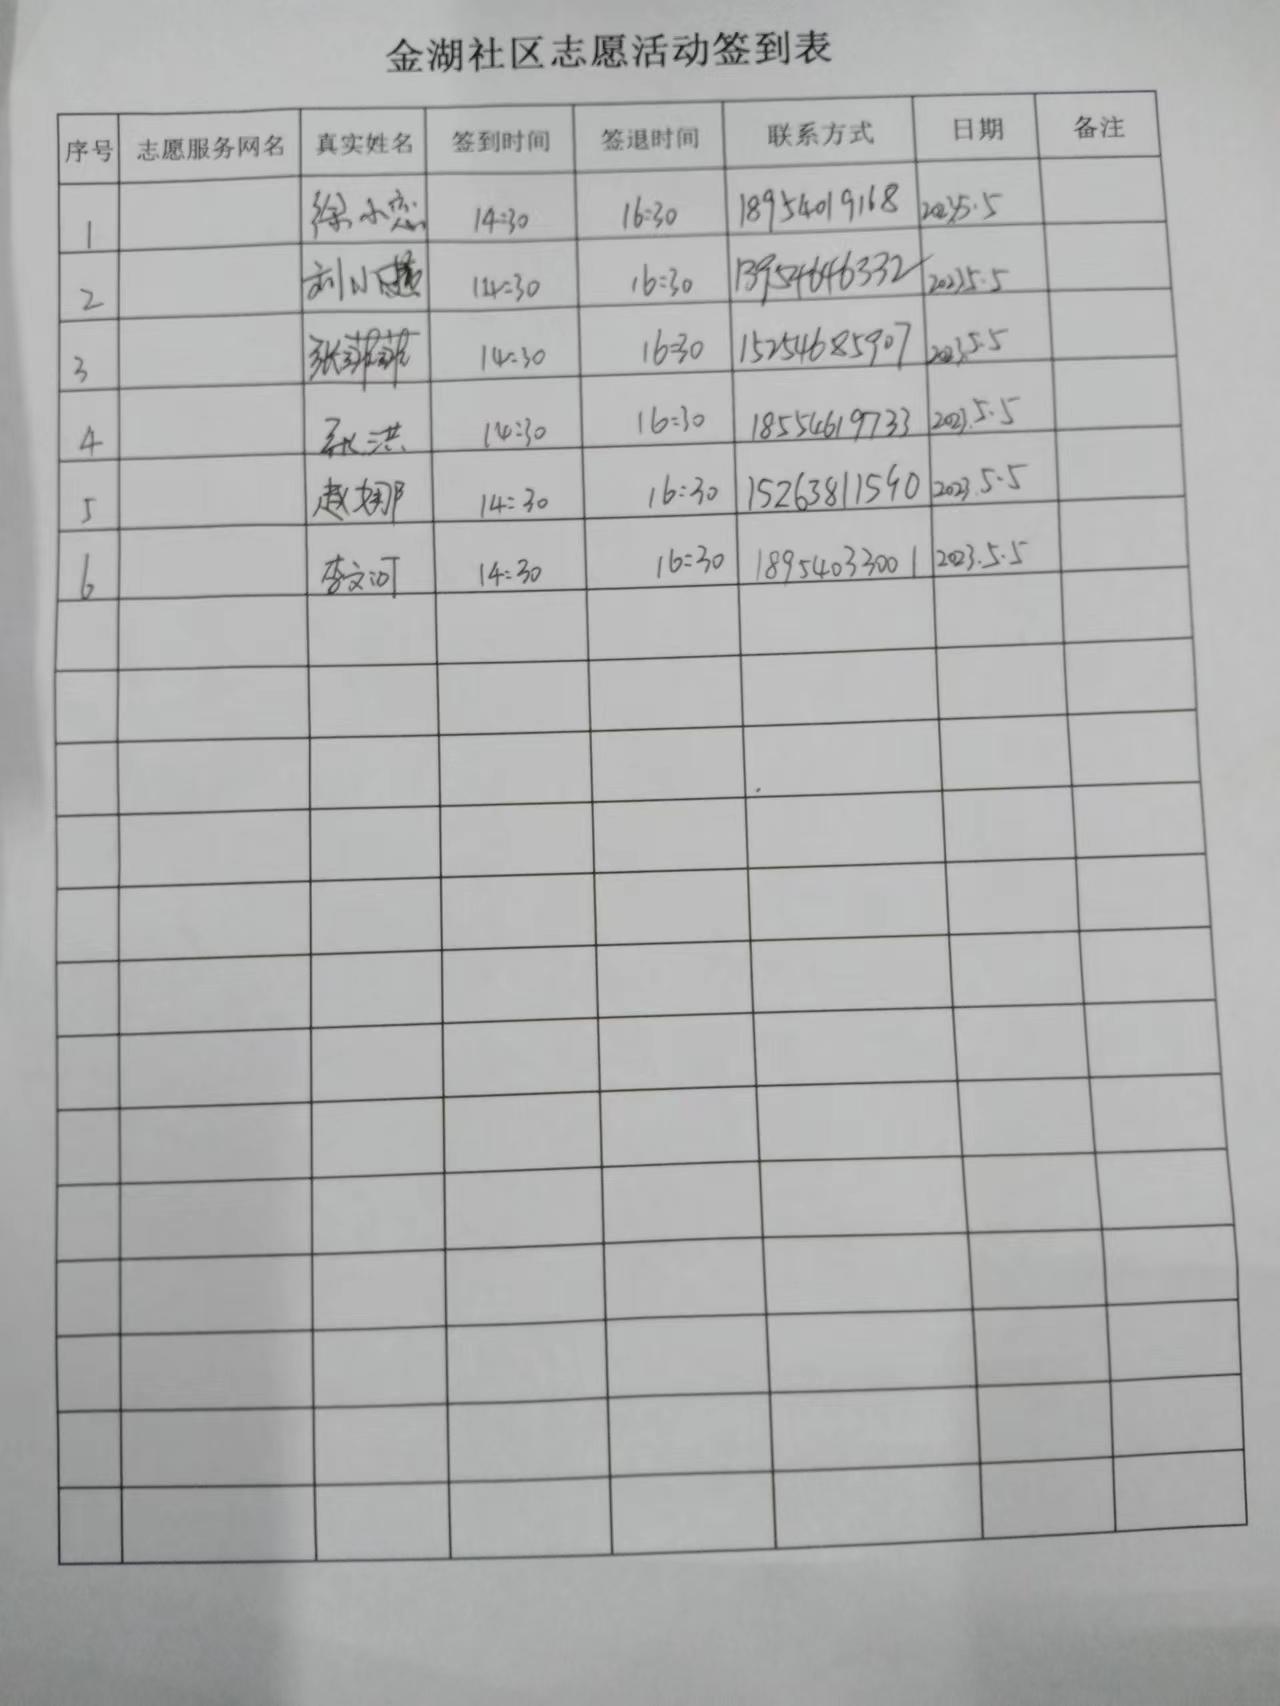 金湖社区志愿活动签到表
序号 志愿服务网名 真实姓名 签到时间 签退时间 联系方式 日期 备注
1 徐小恋 14:30 16:30 18954019168 2023.5.5
2 刘小慧 14:30 16:30 13954646332 2023.5.5
3 张菲菲 14:30 16:30 15254685907 2023.5.5
4 洪 14:30 16:30 18554619733 2023.5.5
5 赵娜 14:30 16:30 15263811590 2023.5.5
6 李文河 14:30 16:30 18954033001 2023.5.5